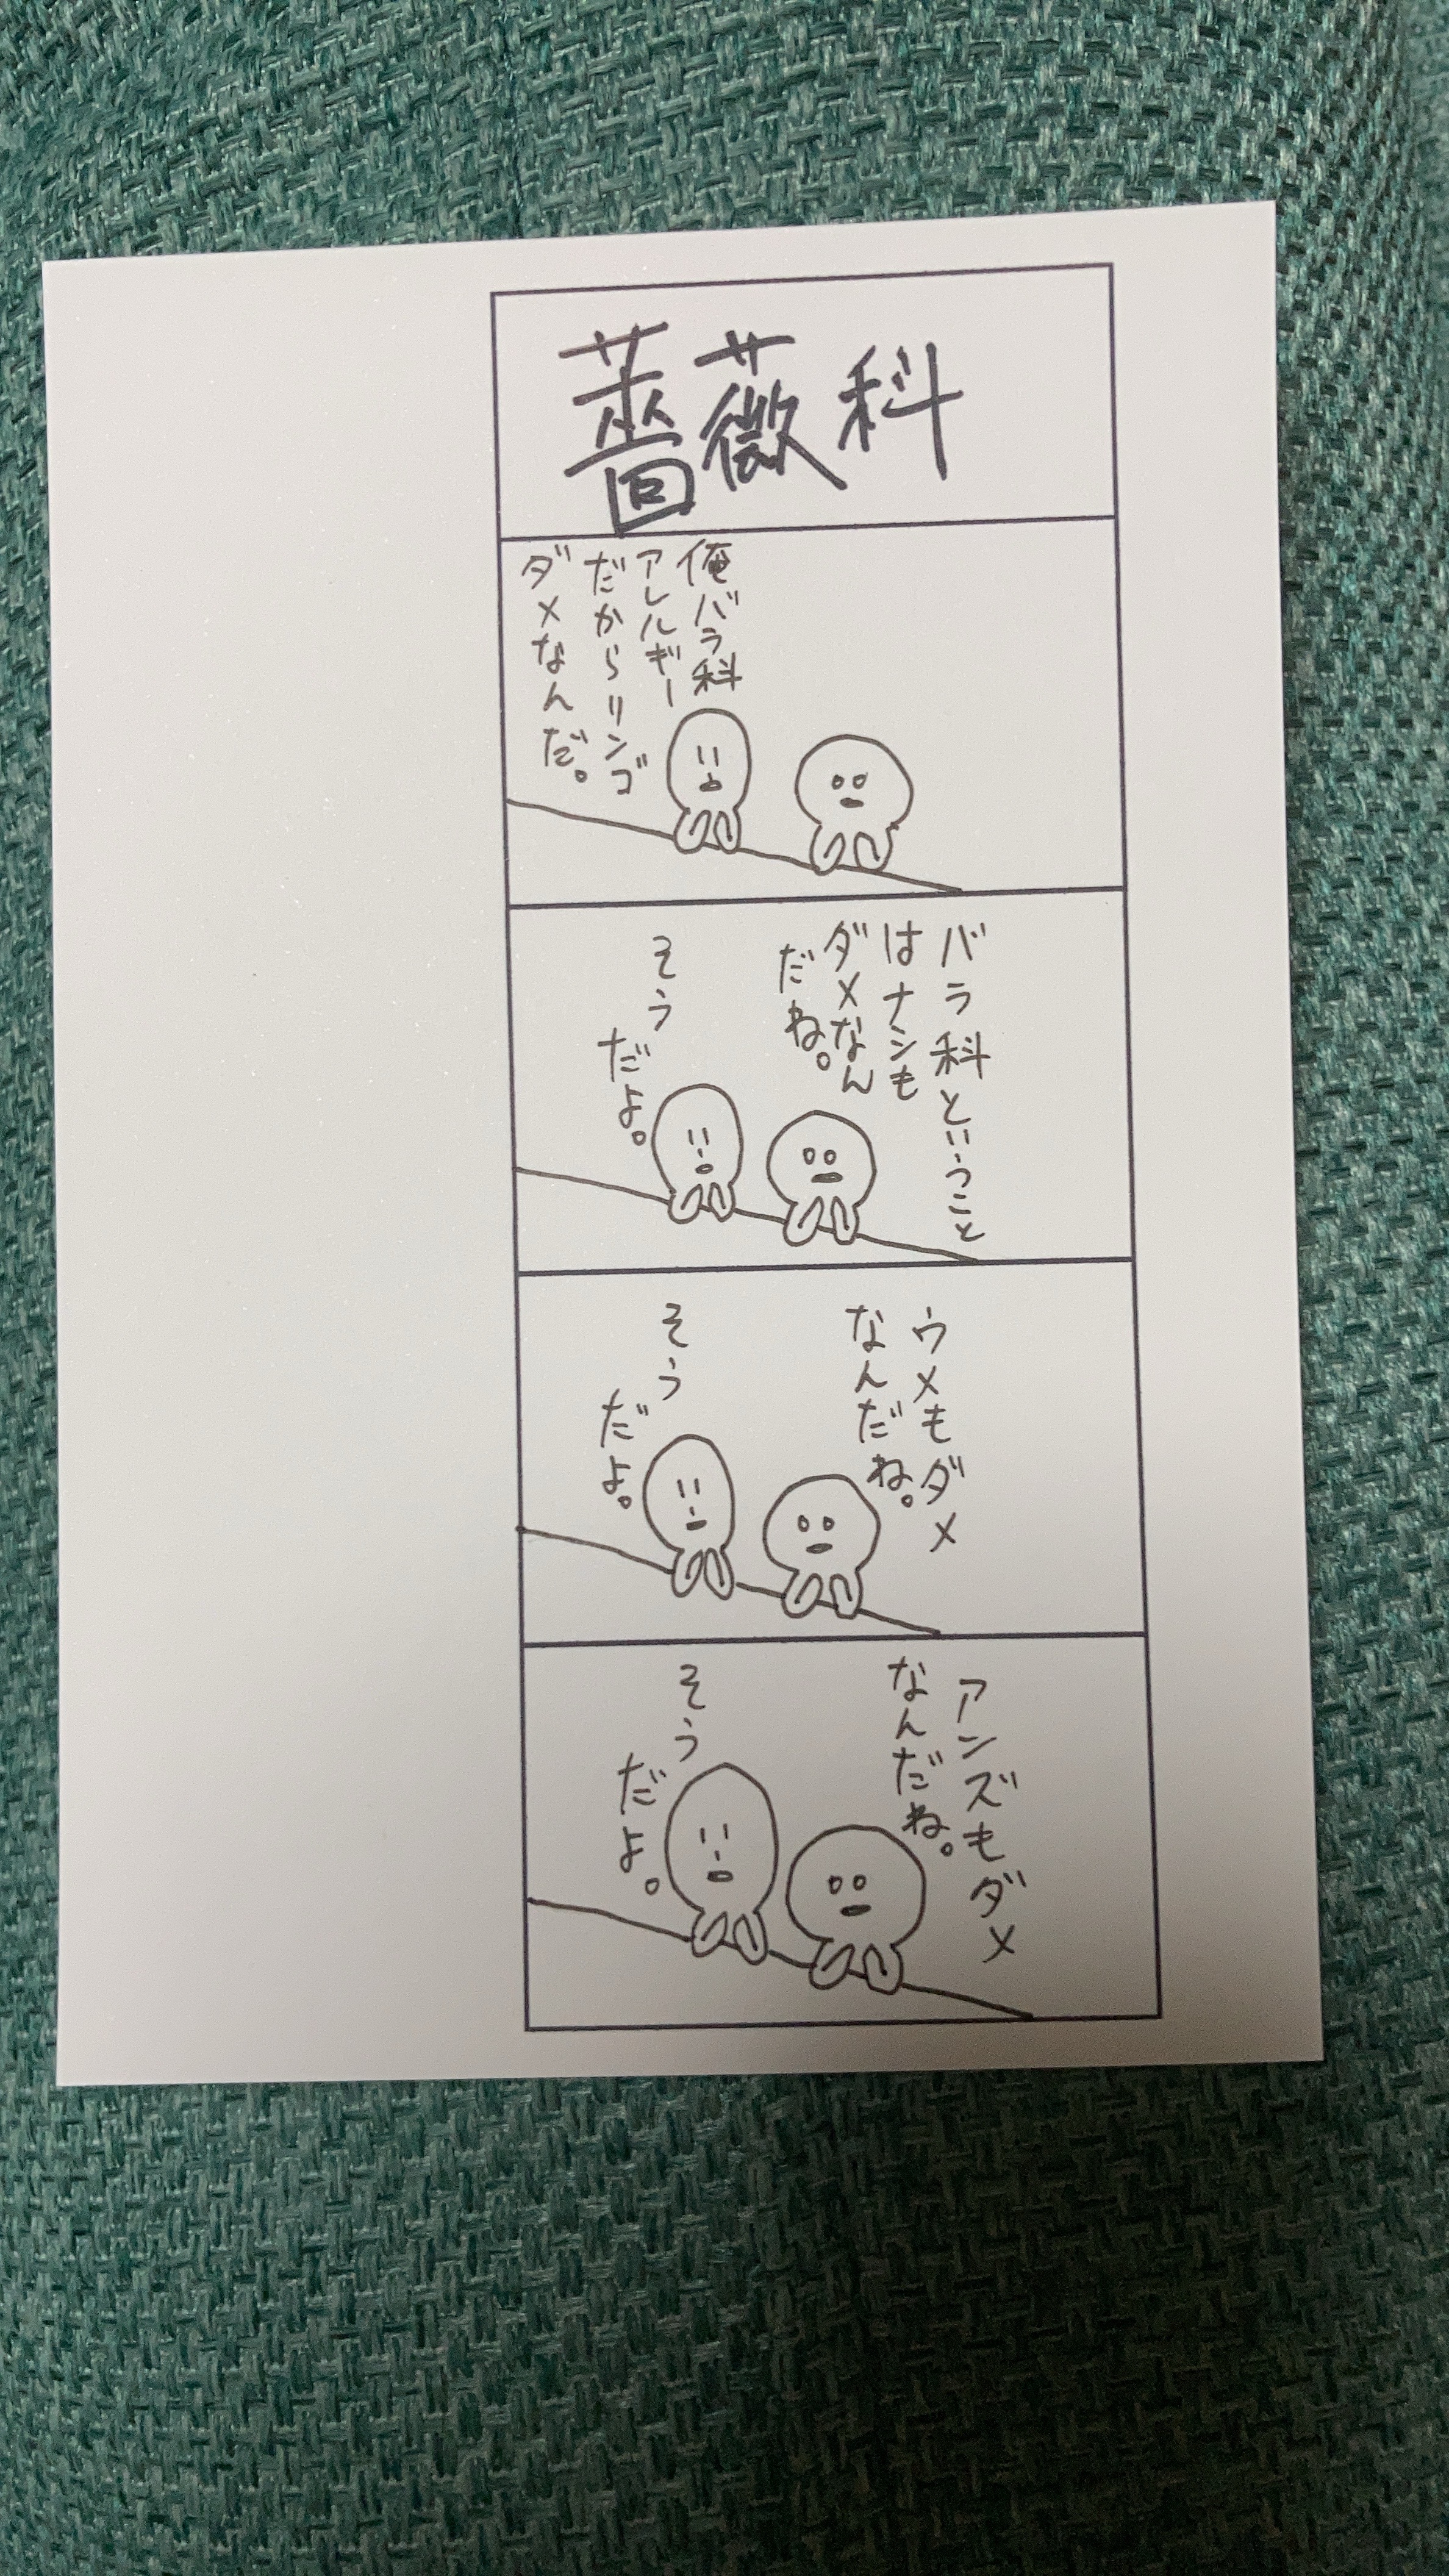 薔薇科
俺バラ科
アレルギー
だからリンゴ
ダメなんだ。
バラ科ということ
はナシも
ダメなん
だね。
そう
だよ。
ウメもダメ
なんだね。
そう
だよ。
アンズもダメ
なんだね。
そう
だよ。